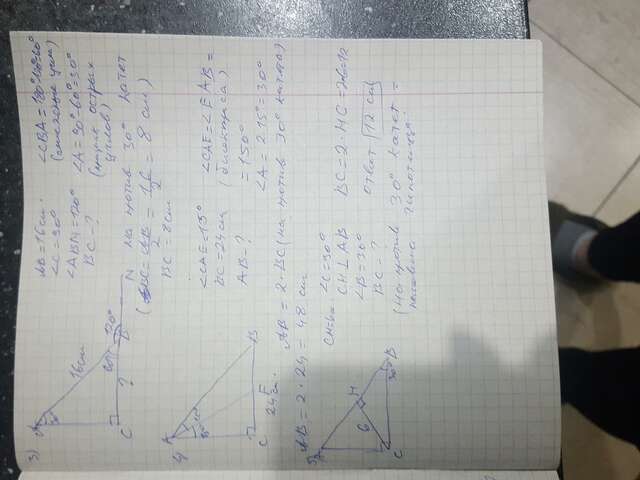 3)
A
30°
16см
60°
120°
B
N
C
?
AB=16см.
∠C=90°
∠ABN=120°
BC-?
∠CBA=180°-120°=60°
(смежные углы)
∠A=90°-60°=30°
(сумма острых
углов)
на против 30° катет
BC = AB/2 = 16/2 = 8 см)
BC=8см
4)
A
15°
B
E
C
24см.
∠CAE=15°
BC=24см
AB-?
∠CAE=∠EAB=
(биссектриса)
=150°
∠A=2·15°=30°
AB = 2·BC (на против 30° катет)
AB = 2·24 = 48 см
A
H
6
30°
B
C
CH=6см
∠C=90°
CH⊥AB
∠B=30°
BC-?
BC=2·HC=2·6=12
ответ 12 см
(На против 30° катет =
половине гипотенузы